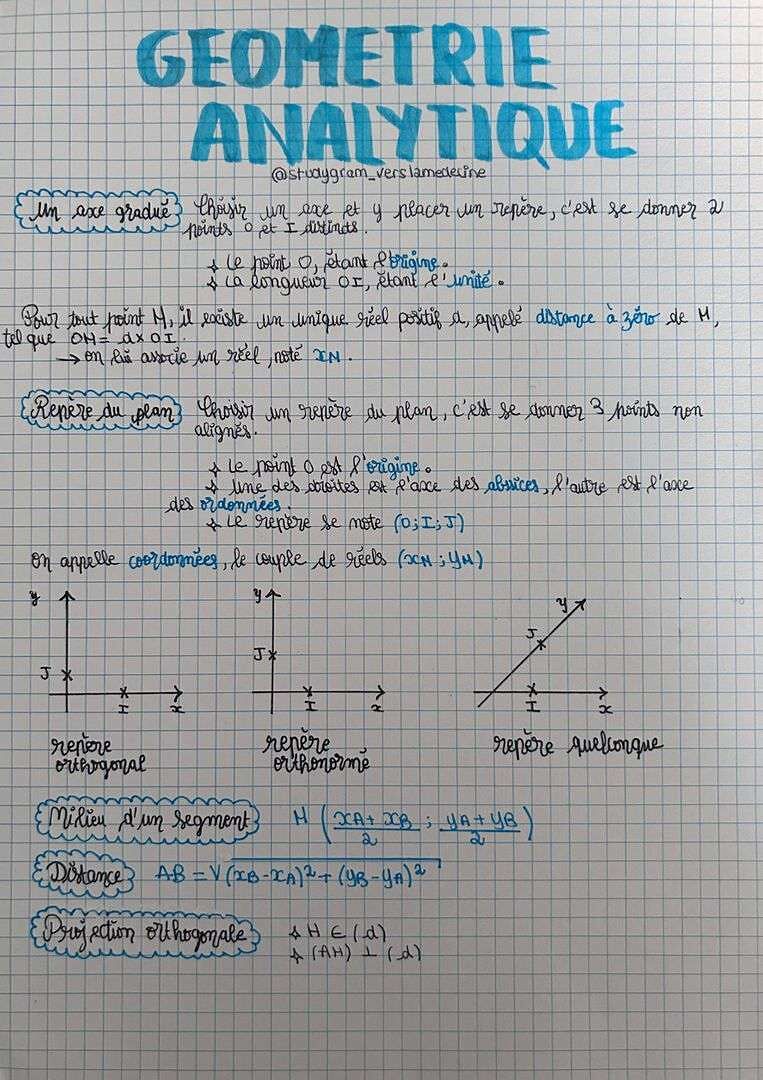 GEOMETRIE
ANALYTIQUE
@studygram_verslamedecine
Un axe gradué Choisir un axe et y placer un repère, c'est se donner 2
points O et I distincts.
Le point O, étant l'origine.
La longueur OI, étant l'unité.
Pour tout point M, il existe un unique réel positif d, appelé distance à zéro de M,
tel que OM = d x OI.
→ on lui associe un réel, noté xM.
Repère du plan Choisir un repère du plan, c'est se donner 3 points non
alignés.
Le point O est l'origine.
Une des droites est l'axe des abscices, l'autre est l'axe
des ordonnées.
Le repère se note (O; I; J)
On appelle coordonnées, le couple de réels (xM ; yM)
y y y
J J J
I x I x I x
repère orthogonal repère orthonormé repère quelconque
Milieu d'un segment M ((xA + xB)/2 ; (yA + yB)/2)
Distance AB = √(xB-xA)²+(yB-yA)²
Projection orthogonale H ∈ (d)
(AH) ⊥ (d)